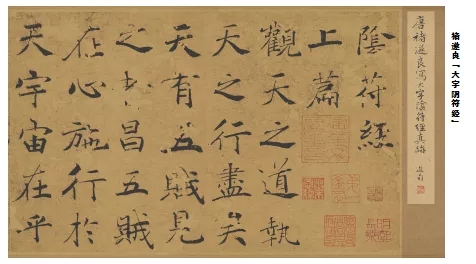 褚遂良「大字阴符经」
唐褚遂良寫大字陰符經真蹟
陰符經
上篇
觀天之道執
天之行盡矣
天有五賊見
之者昌五賊
在心施行於
天宇宙在乎